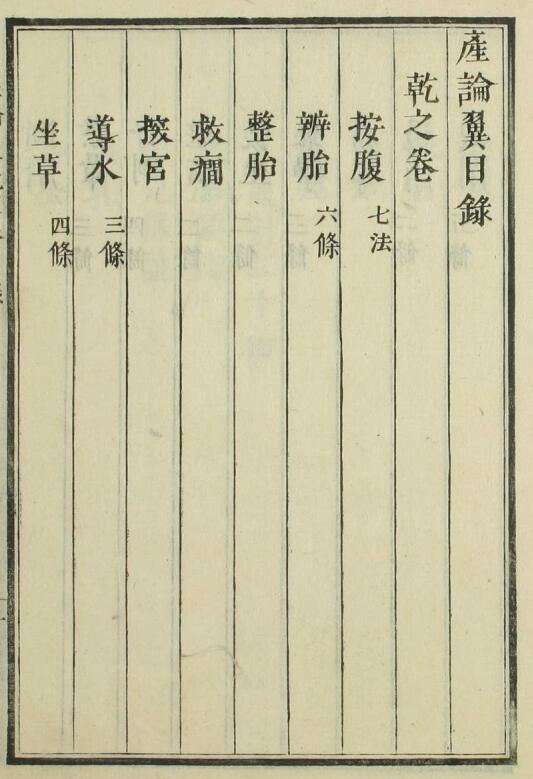 產論翼目錄
乾之卷
按腹 七法
辨胎 六條
整胎
救癇
𢱢宮
導水 三條
坐草 四條